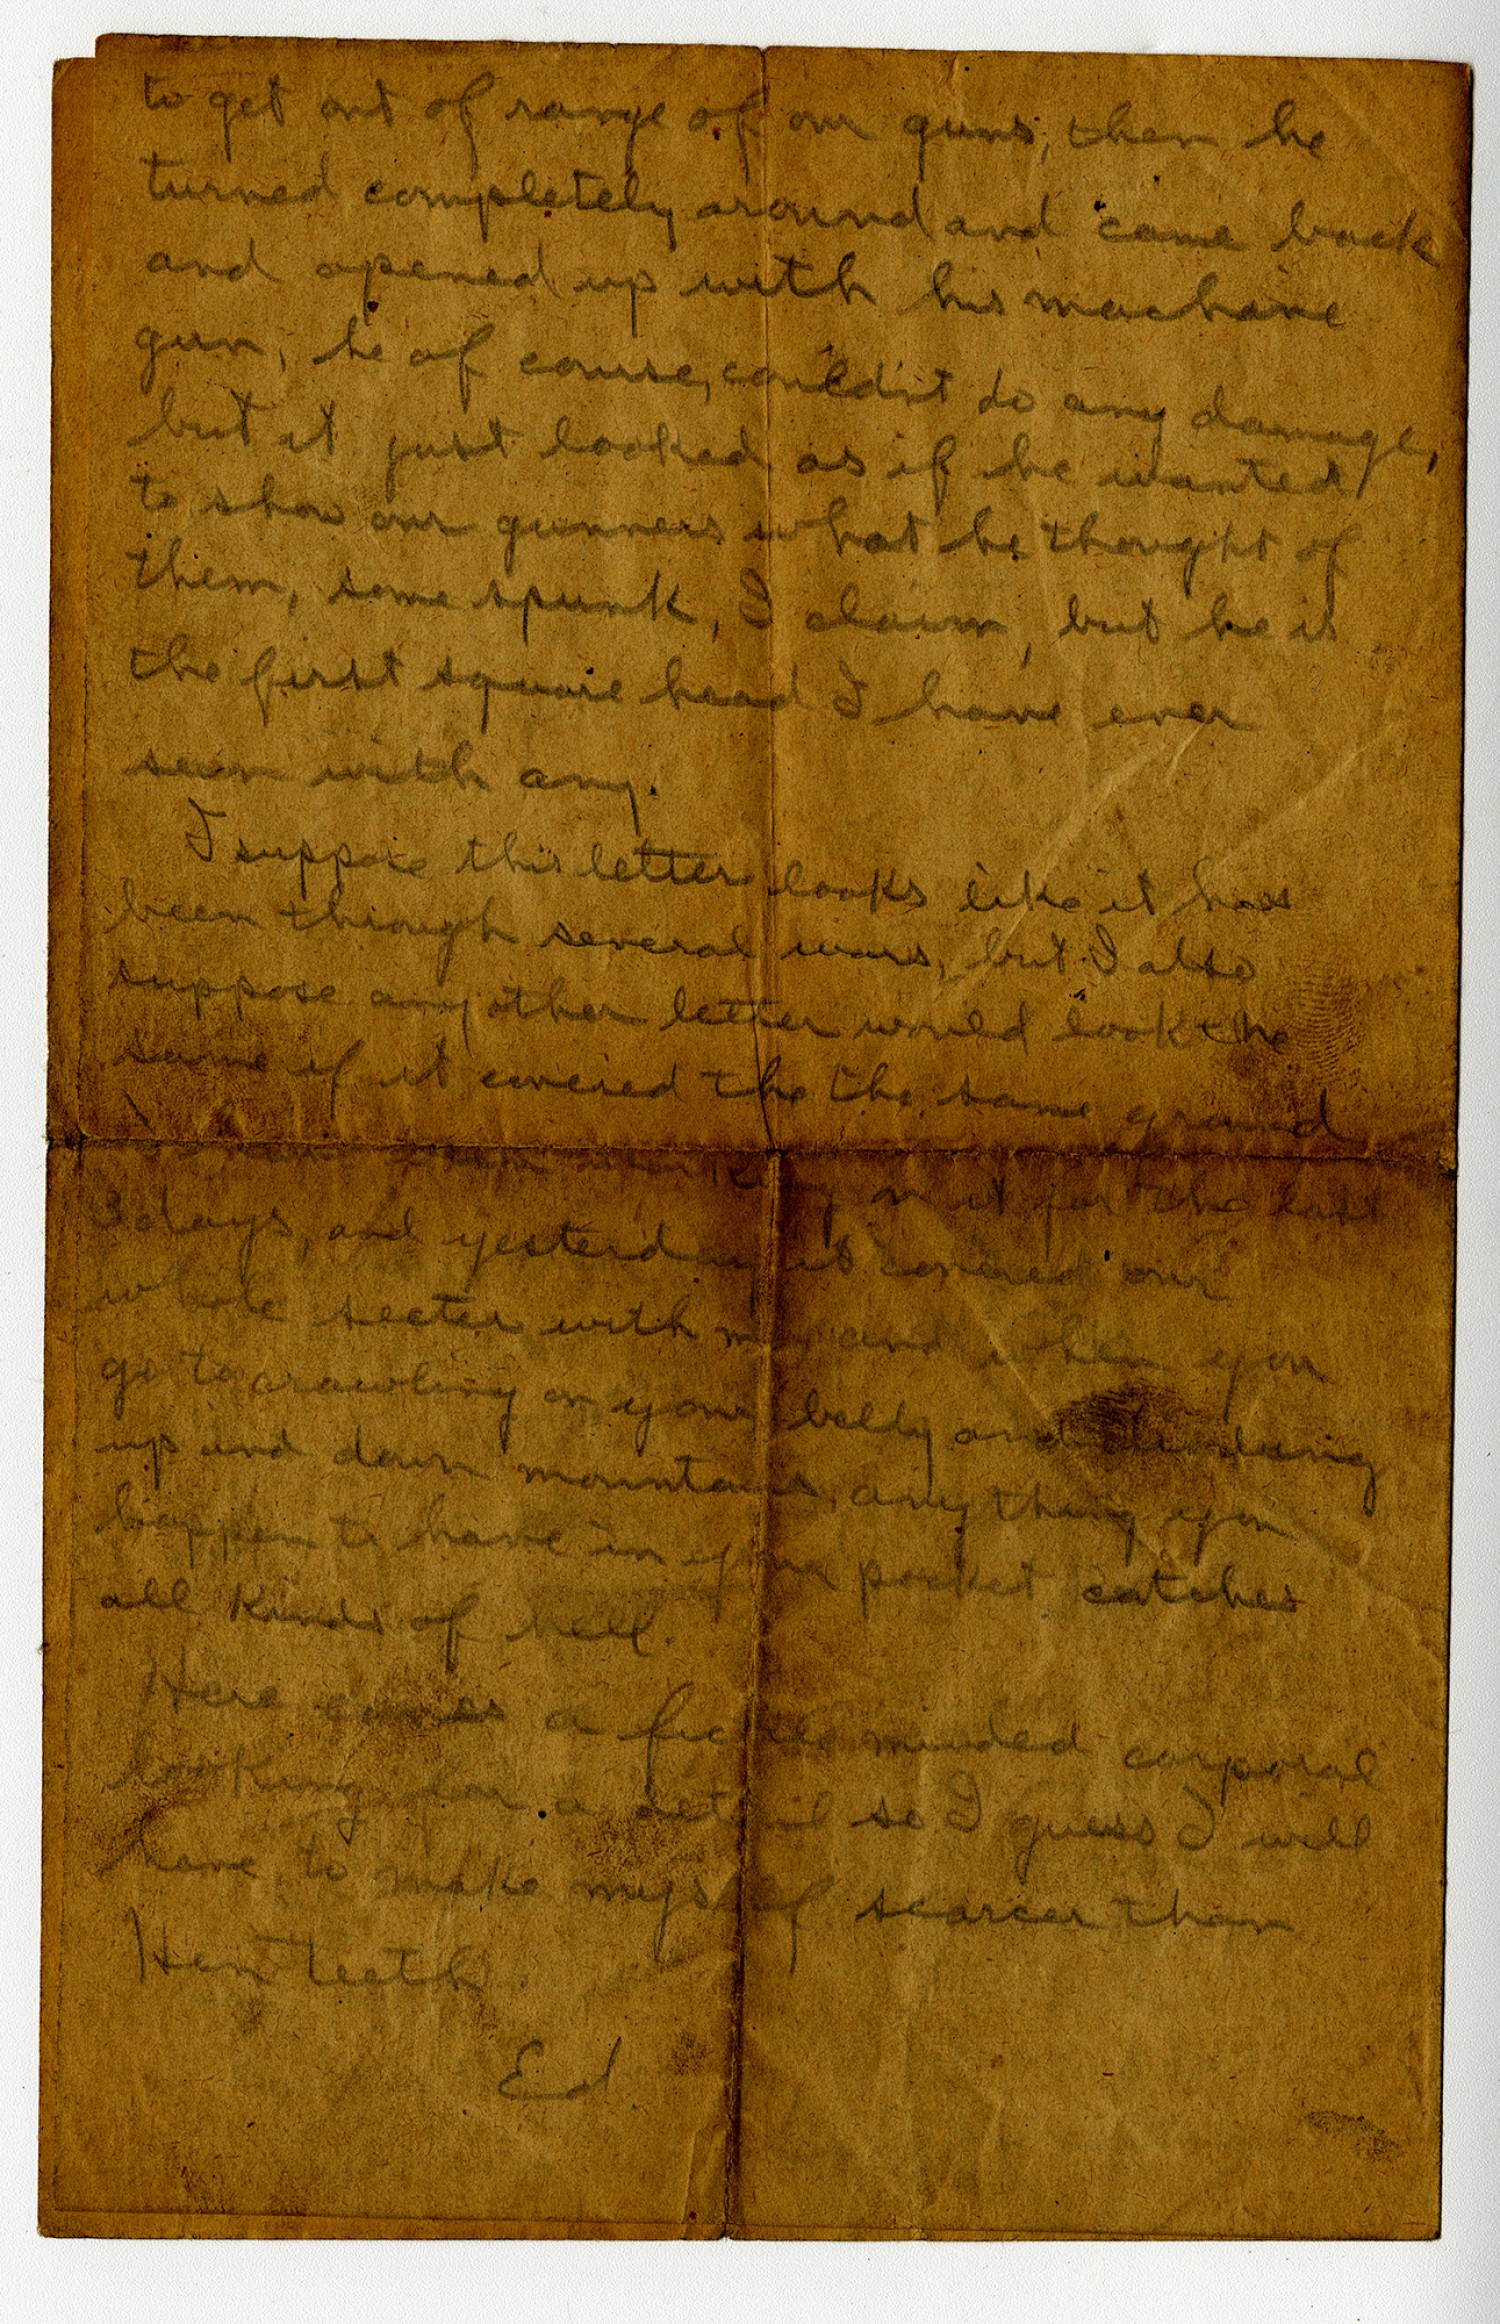 to get out of range of our guns, then he
turned completely around and came back
and opened up with his machine
gun, he of course, couldn't do any damage,
but it just looked as if he wanted
to show our gunners what he thought of
them, some spunk, I claim, but he is
the first square head I have ever
seen with any.
I suppose this letter looks like it has
been through several wars, but I also
suppose any other letter would look the
same if it covered the the same ground
been working on it for the last
3 days, and yesterday it covered our
whole secter with me and when you
go to crawling on your belly and climbing
up and down mountains, anything you
happen to have in your pocket catches
all kinds of hell.
Here comes a minded corporal
looking for a detail so I guess I will
have to make myself scarcer than
Hen teeth.
Ed